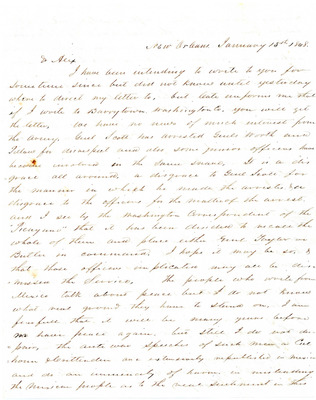 New Orleans January 13th 1848.
D Alex
I have been intending to write to you for
sometime since but did not know until yesterday
where to direct my letter to, but Kate informs me that
if I write to Barrytown, Washington Co, you will get
the letter, we have no news of much interest from
the Army, Genl Scott has arrested Genls Worth and
Pillow for disrespect and also some junior officers have
become involved in the same snare, It is a dis
grace all around, a disgrace to Genl Scott for
the manner in which he made the arrests & a
disgrace to the officers for the matter of the arrest.
and I see by the Washington Correspondent of the
"Picayune" that it has been decided to recall the
whole of them and place either Genl Taylor or
Butler in command. I hope it may be so, &
that those officers implicated may all be dis
missed the Service, The people who write from
Mexico talk about peace but I do not know
what real ground they have to stand on, I am
fearful that it will be many years before
we have peace again, but still I do not de-
spair, the anti war speeches of such men as Cal
houn & Crittenden are extensively republished in Mexico
and do an immensity of harm in misleading
the Mexican people as to the real sentiment in this